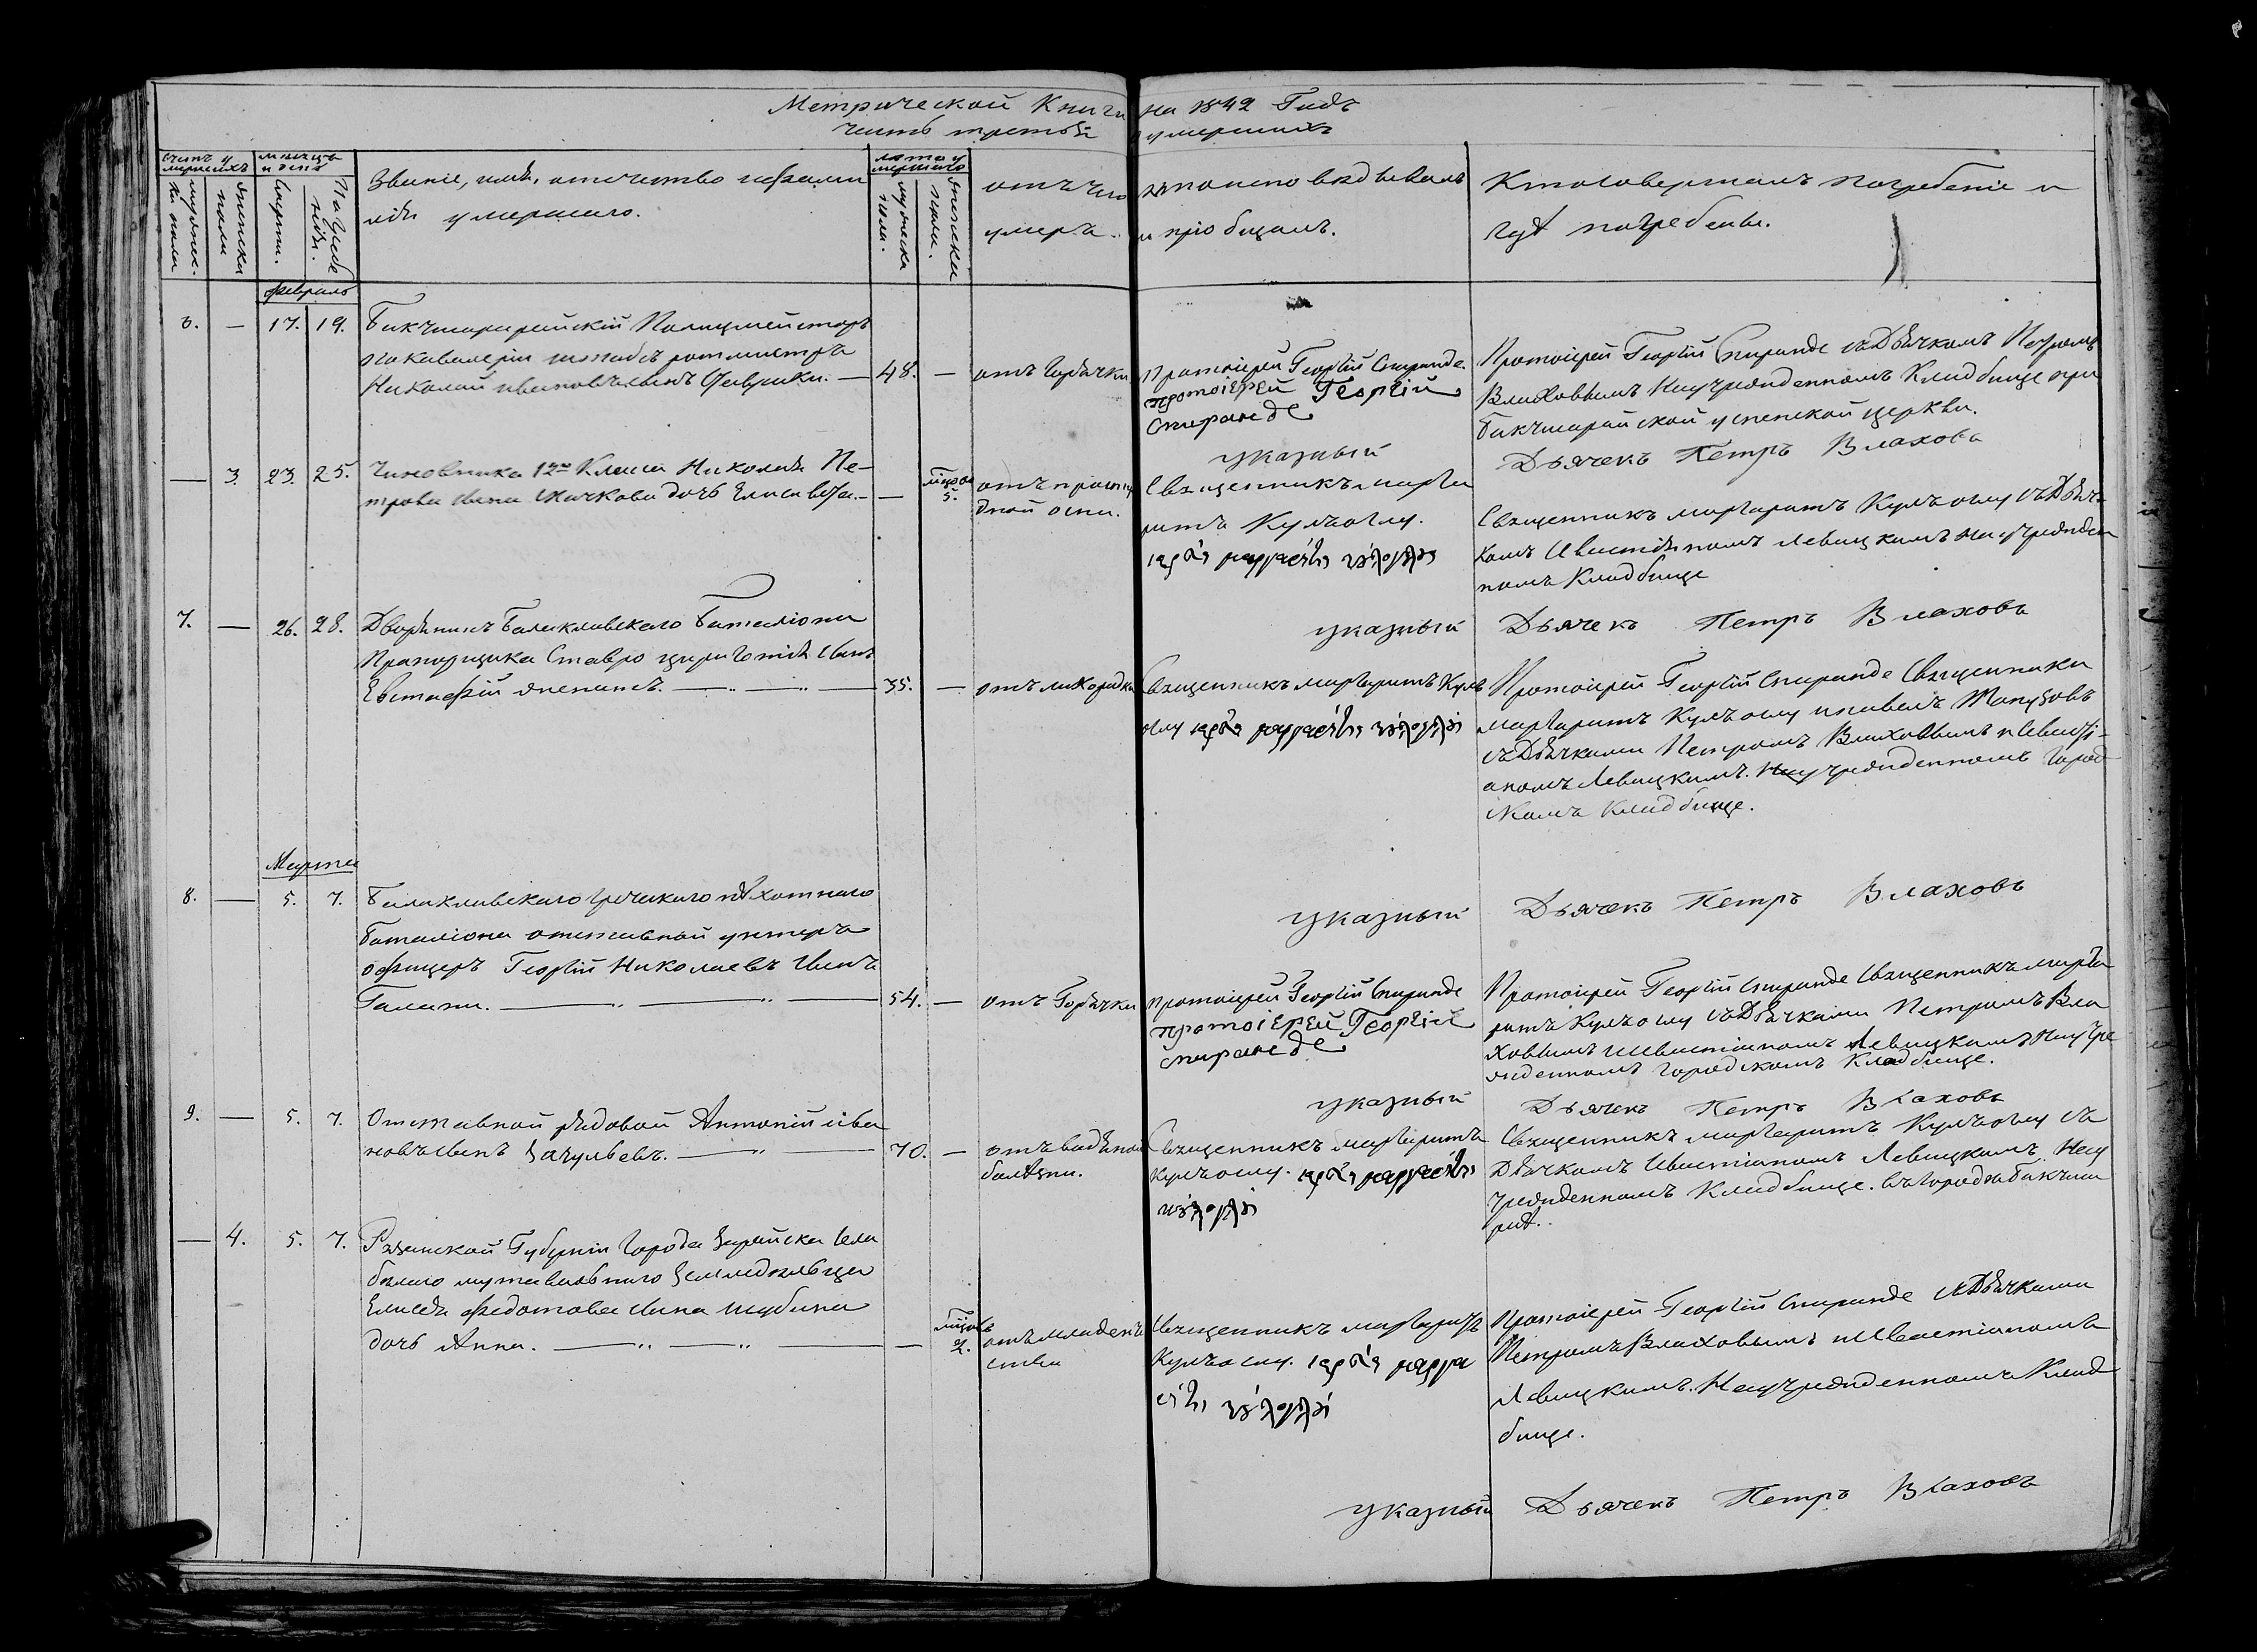 Метрической Книги на 1842 Годъ
часть третья умершихъ
Счетъ умершихъ
мужескаго пола
женска пола
Мѣсяцъ и день
Смерти.
Погребенія.
Званіе, имя, отечество и фамилія умершаго.
лета умершаго
мужеска пола.
женска пола.
отъ чего умеръ.
кто исповѣдывалъ и пріобщалъ.
Кто совершалъ погребеніе и гдѣ погребены.
Февраль
6. — 17. 19. Бахчисарайскій Полицмейстеръ
по кавалеріи штабсъ ротмистръ
Николай Ивановъ сынъ — 48. — отъ Горячки
Протоіерей Георгій Спиранде.
протоіерей Георгій
Спиранде
Протоіерей Георгій Спиранде съ Дьячкомъ Петромъ
Влаховымъ На учрежденномъ Кладбище при
Бакчисарайской успенской церкви.
указный Дьячекъ Петръ Влаховъ
— 3. 23. 25. Чиновника 12го Класса Николая Пе-
трова сына дочь Елисавета. — 5. отъ
дной оспи.
Священникъ Марга
ритъ Кулъоглу.
Священникъ Маргаритъ Кулъоглу съ Дьяч-
комъ Левицкимъ на учрежден
номъ Кладбище
указный Дьячекъ Петръ Влаховъ
7. — 26. 28. Дворянинъ Балаклавскаго Баталіона
Прапорщика Ставро сынъ
Евстафій — 35. — отъ лихорадки
Священникъ Маргаритъ Кулъ
оглу
Протоіерей Георгій Спиранде Священники
Маргаритъ Кулъоглу и Павелъ
съ Дьячками Петромъ Влаховымъ и Севасті-
аномъ Левицкимъ. На учрежденномъ Город
скомъ Кладбище.
указный Дьячекъ Петръ Влаховъ
Марта
8. — 5. 7. Балаклавскаго Греческаго пѣхотнаго
Баталіона отставной унтеръ
офицеръ Георгій Николаевъ Сынъ
Галати. — 54. — отъ Горячки
протоіерей Георгій Спиранде
протоіерей Георгій
спиранде
Протоіерей Георгій Спиранде Священникъ Марга
ритъ Кулъоглу съ Дьячками Петромъ Вла
ховымъ и Севастіаномъ Левицкимъ На учре
жденномъ Городскомъ Кладбище.
указный Дьячекъ Петръ Влаховъ
9. — 5. 7. Отставной рядовой Антоній Ива
новъ сынъ — 70. — отъ водяной
болѣзни.
Священникъ Маргаритъ
Кулъоглу.
Священникъ Маргаритъ Кулъоглу съ
Дьячкомъ Севастіаномъ Левицкимъ На у
чрежденномъ Кладбище. въ Городѣ Бакчиса
раѣ.
— 4. 5. 7. Рязанской Губерніи Города Зарайска села
Елисея Федотова сына Шубина
дочь Анна. — 2. отъ младенче
ства
Священникъ Маргаритъ
Кулъоглу.
Протоіерей Георгій Спиранде съ Дьячками
Петромъ Влаховымъ и Севастіаномъ
Левицкимъ. На учрежденномъ Клад
бище.
указный Дьячекъ Петръ Влаховъ